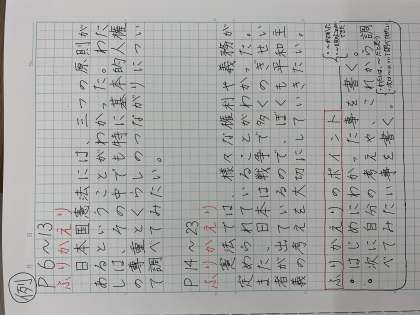 例
P6~13
ふりかえり
日本国憲法には、三つの原則が
あるということがわかった。わた
しは、その中でも特に基本的人権
の尊重とくらしのつながりについ
て調べてみたい。
P14~23
ふりかえり
憲法では、様々な権利や義務が
定められていることがわかった。
また、日本は戦争で多くのぎせい
者が出ているので、ぼくも平和主
義の考えを大切にしていきたい。
ふりかえりのポイント
・はじめにわかった事を書く。
・次に自分の考えや、これから調
べてみたい事を書く。